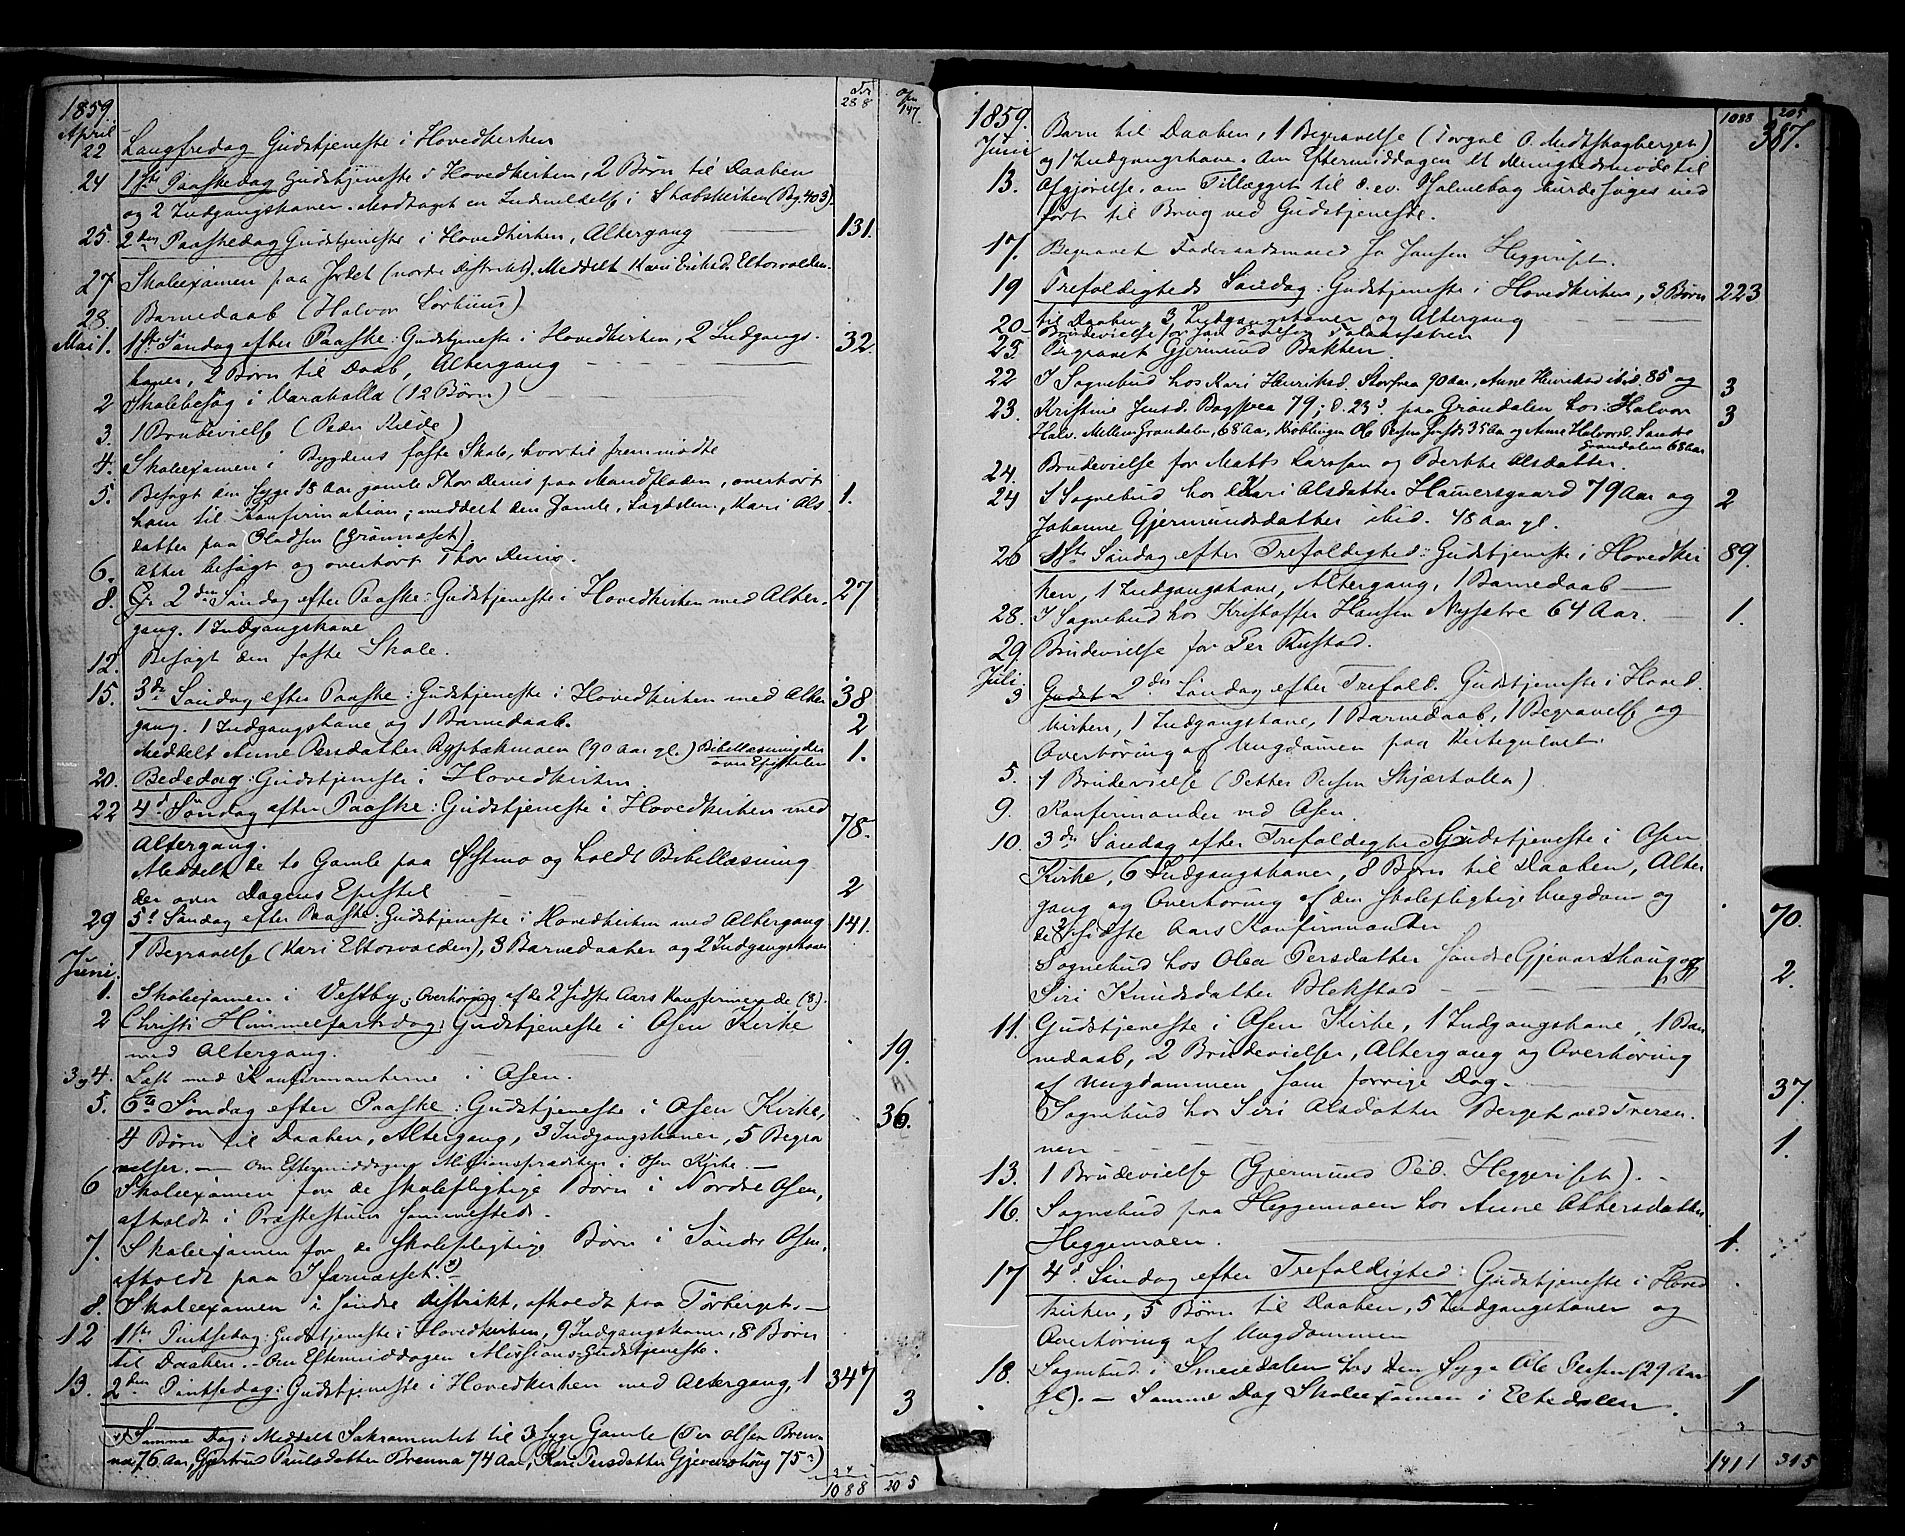 1859.
Tr 288
Osen 147.
April
22 Langfredag Gudstjeneste i Hovedkirken
24 1ste Paaskedag Gudstjeneste i Hovedkirken, 2 Børn til Daaben
og 2 Indgangskoner. Modtaget en Indmeldelse i Statskirken (Pg. 403).
25. 2den Paaskedag Gudstjeneste i Hovedkirken, Altergang 131.
27 Skoleexamen paa Jordet (nordre Distrikt). Meddelt Kari Eriksd. Eltesvolden.
28. Barnedaab (Halvor Sørhuus)
Mai 1. 1ste Søndag efter Paaske: Gudstjeneste i Hovedkirken, 2 Indgangs- 32.
koner, 2 Børn til Daab, Altergang
2 Skolebesøg i Varaholla (12 Børn)
3. 1 Brudevielse (Peder Kilde)
4. Skoleexamen i Bygdens faste Skole, hvortil fremmødte
5. Besøgt den syge 18 Aar gamle Thor Denis paa Mandfloden, overhørt
ham til Konfirmation; meddelt den Gamle, Kari Ols- 1.
datter paa Oladsen (Grønnaset).
6. Atter besøgt og overhørt Thor Denis.
8. 2den Søndag efter Paaske: Gudstjeneste i Hovedkirken med Alter- 27
gang. 1 Indgangskone
12. Besøgt den faste Skole.
15. 3de Søndag efter Paaske: Gudstjeneste i Hovedkirken med Alter- 38
gang. 1 Indgangskone og 1 Barnedaab. 2
Meddelt Anne Persdatter Rypbakmoen (90 Aar gl.) Bibellæsning der 1.
over Epistelen
20. Bededag: Gudstjeneste i Hovedkirken
22 4de Søndag efter Paaske: Gudstjeneste i Hovedkirken med
Altergang. 78.
Meddelt de to Gamle paa Østmo og holdt Bibellæsning
der over Dagens Epistel 2
29 5te Søndag efter Paaske: Gudstjeneste i Hovedkirken med Altergang 141.
1 Begravelse (Kari Eltesvolden), 3 Barnedaaber og 2 Indgangskoner
Juni
1. Skoleexamen i Vestby, Overhøring af de 2 sidste Aars Konfirmerede (8).
2 Christi Himmelfartsdag: Gudstjeneste i Osen Kirke
med Altergang. 19.
3 og 4. Læst med Konfirmanterne i Osen.
5. 6te Søndag efter Paaske: Gudstjeneste i Osen Kirke, 36.
4 Børn til Daaben, Altergang, 3 Indgangskoner, 5 Begra-
velser. — Om Eftermiddagen Missionsprædiken i Osen Kirke. —
6 Skoleexamen for de skolepligtige Børn i Nordre Osen,
afholdt i Præstestuen sammesteds.
7. Skoleexamen for de skolepligtige Børn i Søndre Osen,
afholdt paa Ifarnæsset. *)
8. Skoleexamen i søndre Distrikt, afholdt paa Torberget.
12 1ste Pintsedag: Gudstjeneste i Hovedkirken, 9 Indgangskoner, 8 Børn
til Daaben. — Om Eftermiddagen Missions-Gudstjeneste.
13. 2den Pintsedag: Gudstj. i Hovedkirken med Altergang, 1 347
3
*) Samme Dag: Meddelt Sakramentet til 3 syge Gamle (Per Olsen Bren-
na 76 Aar, Gjertrud Paulsdatter Brenna 74 Aar, Kari Persdatter Gjeverhoug 75 ")
1088 205
1859.
1088 205
387.
Juni
13. Barn til Daaben, 1 Begravelse (Torgal O. Midtskogberget)
og 1 Indgangskone. Om Eftermiddagen et Menighedsmøde til
Afgjørelse, om Tillægget til d. ev. Psalmebog burde søges ind-
ført til Brug ved Gudstjeneste.
17. Begravet Føderaadsmand Jo Jonsen Heggeriset.
19 Trefoldigheds Søndag: Gudstjeneste i Hovedkirken, 3 Børn 223
til Daaben, 3 Indgangskoner og Altergang
20 Brudevielse for
23. Begravet Gjermund Bakken.
22 I Sognebud hos Kari Henriksd. Storsvea 90 Aar, Anne Henriksd ibid. 85 og 3
23. Kristine Jensd. Bagsvea 79; d. 23de paa Grøndalen hos Halvor 3
Halv. Mellem Grøndalen, 68 Aar, Krøblingen Ole Persen 35 Aar og Anne Halvorsd. Søndre
Grøndalen 68 Aar
24. Brudevielse for Matts Larssen og Berthe Olsdatter.
24 I Sognebud hos Kari Olsdatter Hamersgaard 79 Aar og 2
Johanne Gjermundsdatter ibid. 48 Aar gl.
26 1ste Søndag efter Trefoldighed: Gudstjeneste i Hovedkir- 89.
ken, 1 Indgangskone, Altergang, 1 Barnedaab —
28. I Sognebud hos Kristoffer Hansen Nysætre 64 Aar. — 1.
29. Brudevielse for Per Kustad.
Juli
3 Gudst 2den Søndag efter Trefold. Gudstjeneste i Hoved-
kirken, 1 Indgangskone, 1 Barnedaab, 1 Begravelse og
Overhøring af Ungdommen paa Kirkegulvet.
5. 1 Brudevielse (Petter Persen Skjærholla)
9. Konfirmander ved Osen.
10. 3die Søndag efter Trefoldighed Gudstjeneste i Osen
Kirke, 6 Indgangskoner, 8 Børn til Daaben, Alter
gang og Overhøring af den skolepligtige Ungdom og 70.
de 2 sidste Aars Konfirmander
Sognebud hos Olea Persdatter Søndre Gjevarthoug og 2.
Siri Knudsdatter Blekstad
11. Gudstjeneste i Osen Kirke, 1 Indgangskone, 1 Bar
nedaab, 2 Brudevielser, Altergang og Overhøring
af Ungdommen som forrige Dag. 37.
Sognebud hos Siri Olsdatter Berget ved Tversen-
nen 1.
13. 1 Brudevielse (Gjermund Ped. Heggeriset).
16. Sognebud paa Heggemoen hos Anne Ottersdatter
Heggemoen. 1.
17 4de Søndag efter Trefoldighed: Gudstjeneste i Hoved
kirken, 5 Børn til Daaben, 5 Indgangskoner og
Overhøring af Ungdommen
18. Sognebud i Smeiedalen hos den syge Ole Persen (29 Aar
gl). — Samme Dag Skoleexamen i Eltedalen. 1
1411 315